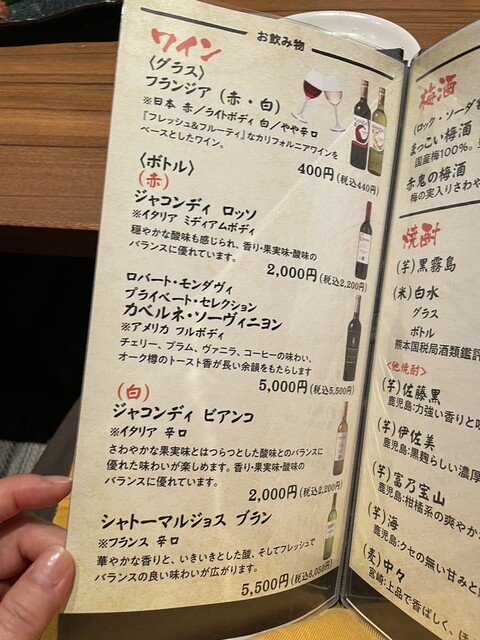 お飲み物
ワイン
〈グラス〉
フランジア（赤・白）
※日本 赤／ライトボディ 白／やや辛口
『フレッシュ&フルーティ』なカリフォルニアワインを
ベースとしたワイン。
400円(税込440円)
〈ボトル〉
(赤)
ジャコンディ ロッソ
※イタリア ミディアムボディ
穏やかな酸味も感じられ、香り・果実味・酸味の
バランスに優れています。
2,000円(税込2,200円)
ロバート・モンダヴィ
プライベート・セレクション
カベルネ・ソーヴィニヨン
※アメリカ フルボディ
チェリー、プラム、ヴァニラ、コーヒーの味わい、
オーク樽のトースト香が長い余韻をもたらします
5,000円(税込5,500円)
(白)
ジャコンディ ビアンコ
※イタリア 辛口
さわやかな果実味とはつらつとした酸味とのバランスに
優れた味わいが楽しめます。香り・果実味・酸味の
バランスに優れています。
2,000円(税込2,200円)
シャトーマルジョス ブラン
※フランス 辛口
華やかな香りと、いきいきとした酸、そしてフレッシュで
バランスの良い味わいが広がります。
5,500円(税込6,050円)
梅酒
(ロック・ソーダ
まっこい梅酒
国産梅100%。
赤鬼の梅酒
梅の実入りさわや
焼酎
(芋)黒霧島
(米)白水
グラス
ボトル
熊本国税局酒類鑑評
<他焼酎>
(芋)佐藤黒
鹿児島:力強い香りと
(芋)伊佐美
鹿児島:黒麹らしい濃厚
(芋)富乃宝山
鹿児島:柑橘系の爽やか
(芋)海
鹿児島:クセの無い甘みと
(麦)中々
宮崎:上品で香ばしく、ほ